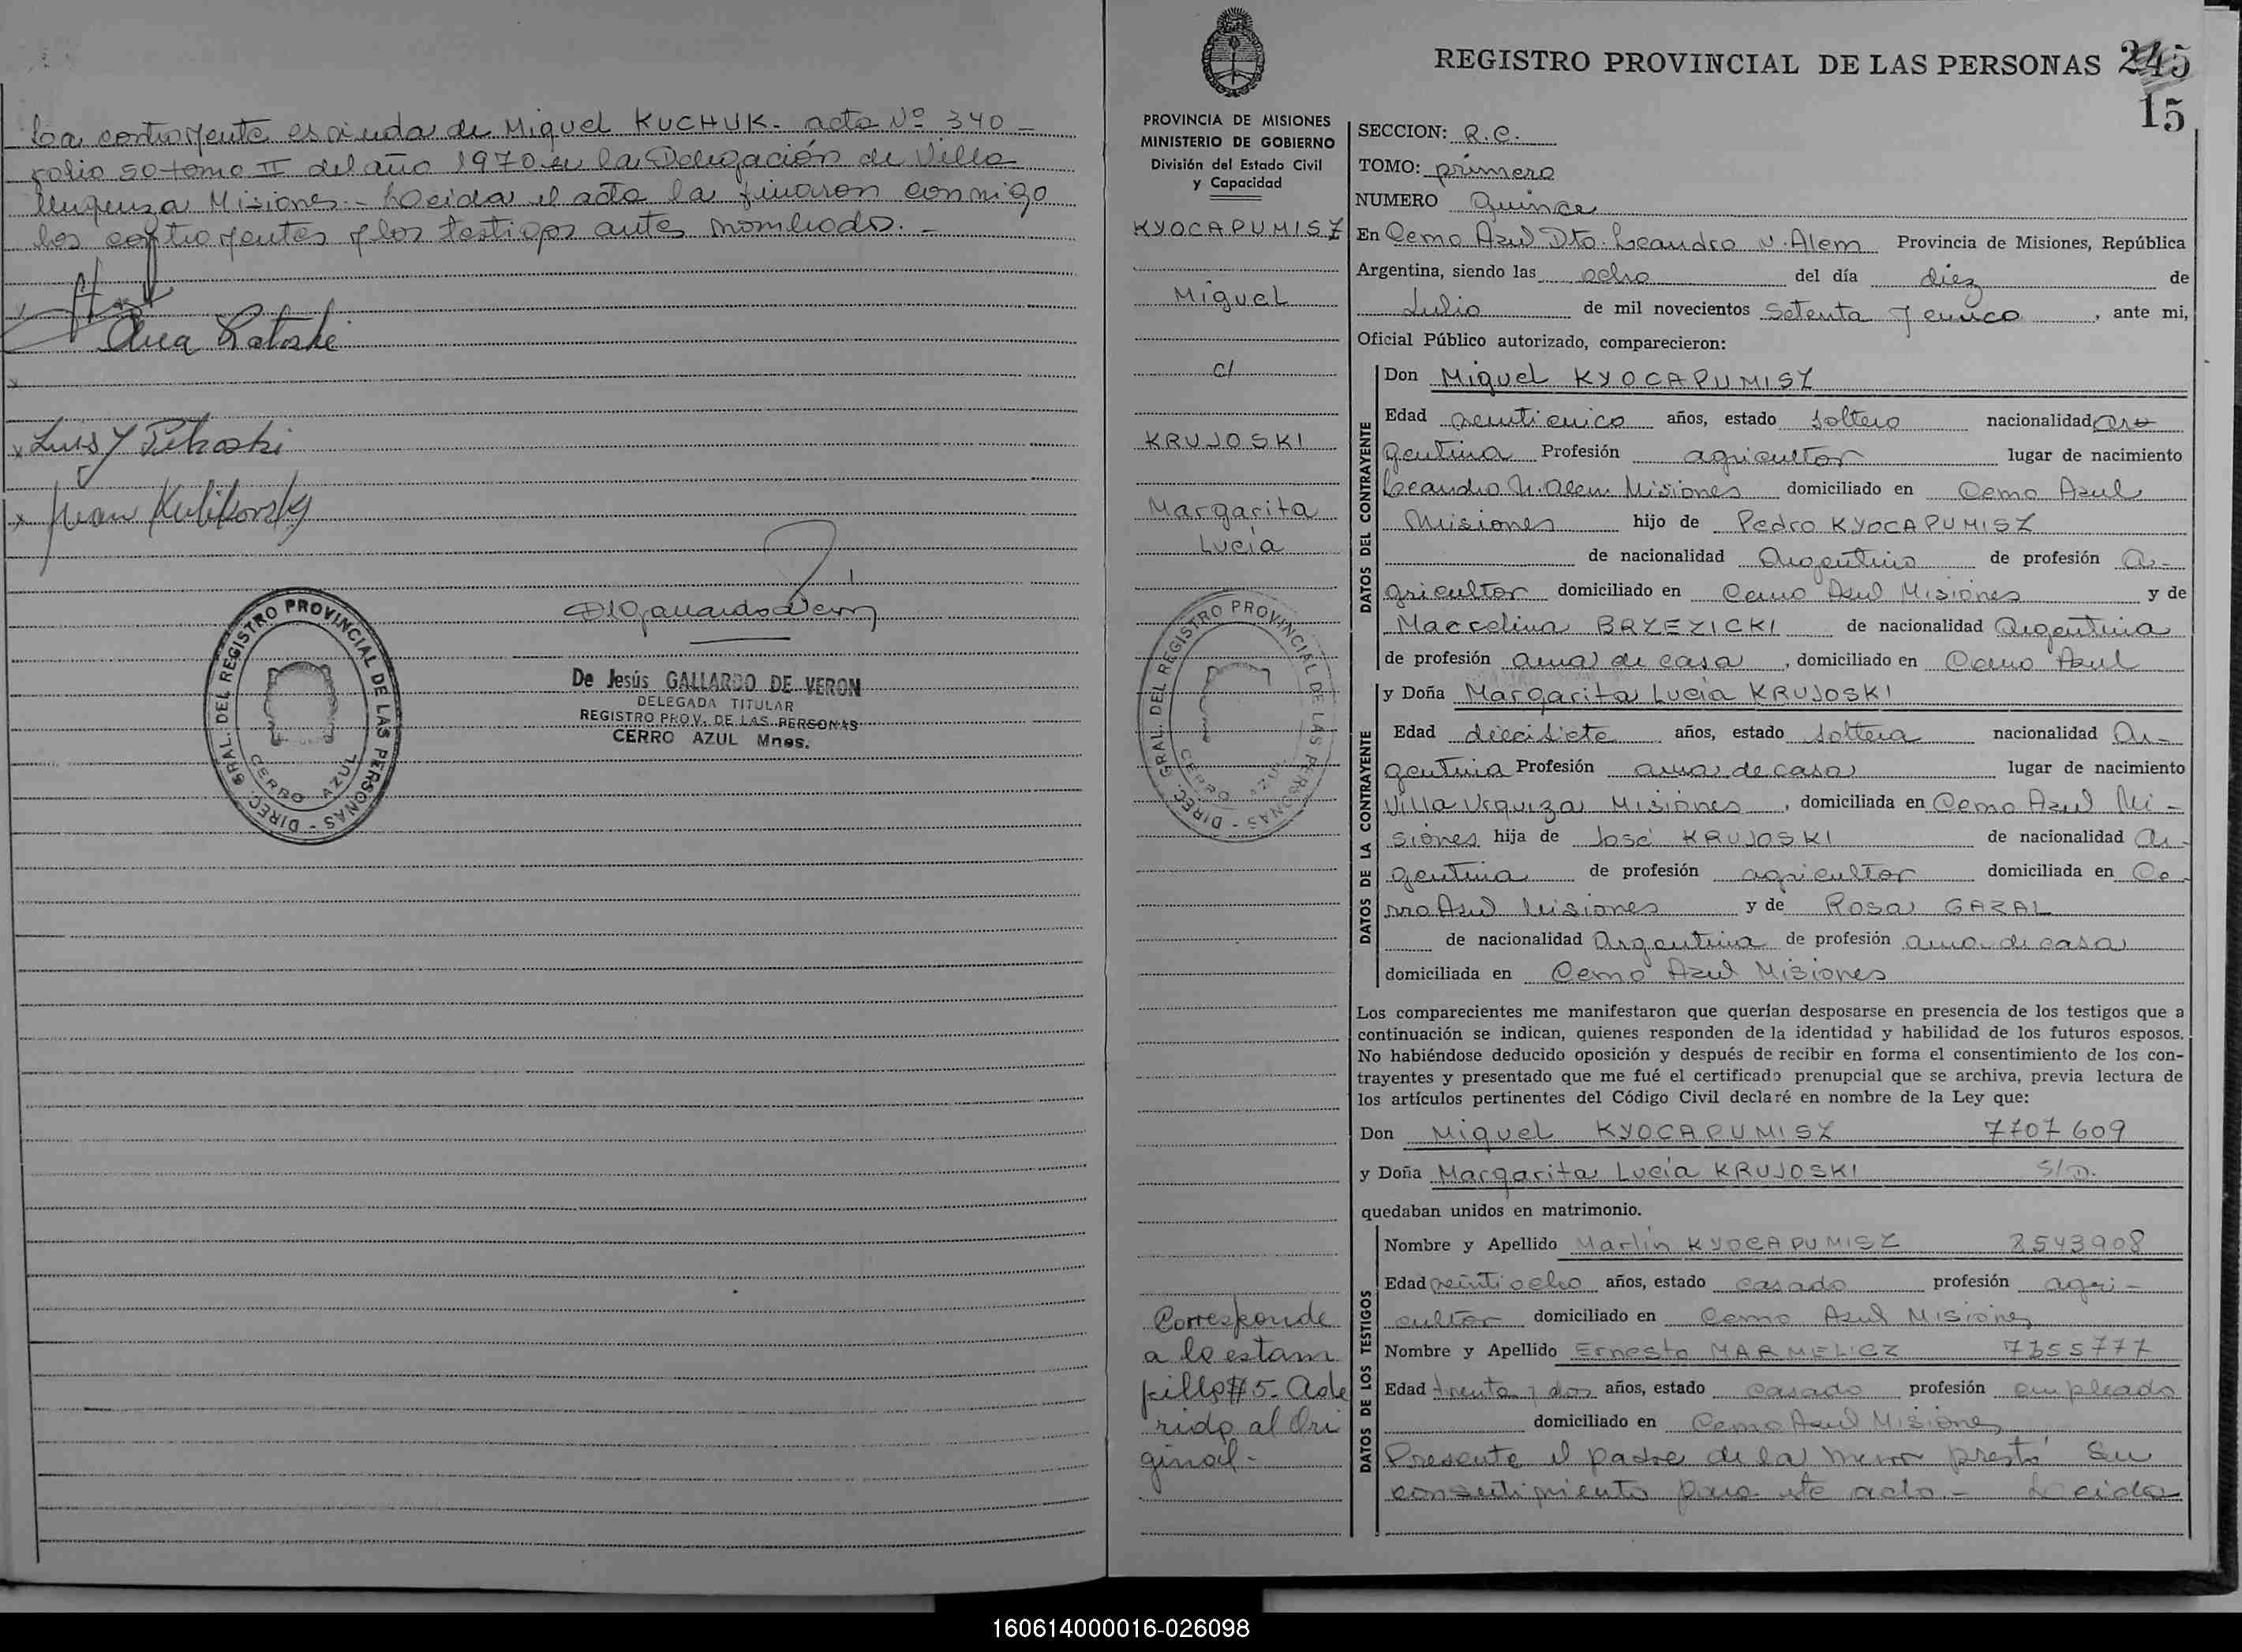 La contrayente es viuda de Miguel KUCHUK - acta Nº 340 -
folio 50 tomo II del año 1970 en la Delegación de Villa
Urquiza Misiones - Leida el acta la firmaron conmigo
los contrayentes y los testigos antes nombrados. -
Ana
Luis
Juan Kulikovsky
DIREC. GRAL. DEL REGISTRO PROVINCIAL DE LAS PERSONAS - CERRO AZUL
De Jesús GALLARDO DE VERON
DELEGADA TITULAR
REGISTRO PROV. DE LAS PERSONAS
CERRO AZUL Mnes.
REGISTRO PROVINCIAL DE LAS PERSONAS 245
15
PROVINCIA DE MISIONES
MINISTERIO DE GOBIERNO
División del Estado Civil
y Capacidad
KYOCAPUMISZ
Miguel
c/
KRUJOSKI
Margarita
Lucía
DIREC. GRAL. DEL REGISTRO PROVINCIAL DE LAS PERSONAS - CERRO AZUL
Corresponde
a la estam
pilla $ 5. Ade
rido al Ori
ginal -
SECCION: R.C.
TOMO: primero
NUMERO Quince
En Cerro Azul Dto. Leandro N. Alem Provincia de Misiones, República
Argentina, siendo las ocho del día diez de
Julio de mil novecientos Setenta y cinco, ante mi,
Oficial Público autorizado, comparecieron:
DATOS DEL CONTRAYENTE
Don Miguel KYOCAPUMISZ
Edad veinticinco años, estado soltero nacionalidad ar
gentina Profesión agricultor lugar de nacimiento
Leandro N. Alem Misiones domiciliado en Cerro Azul
Misiones hijo de Pedro KYOCAPUMISZ
de nacionalidad Argentino de profesión a-
gricultor domiciliado en Cerro Azul Misiones y de
Marcelina BRZEZICKI de nacionalidad Argentina
de profesión ama de casa, domiciliado en Cerro Azul
DATOS DE LA CONTRAYENTE
y Doña Margarita Lucía KRUJOSKI
Edad diecisiete años, estado soltera nacionalidad Ar-
gentina Profesión ama de casa lugar de nacimiento
Villa Urquiza Misiones, domiciliada en Cerro Azul Mi-
siones hija de José KRUJOSKI de nacionalidad Ar-
gentina de profesión agricultor domiciliada en Ce-
rro Azul Misiones y de Rosa GAZAL
de nacionalidad Argentina de profesión ama de casa
domiciliada en Cerro Azul Misiones
Los comparecientes me manifestaron que querían desposarse en presencia de los testigos que a
continuación se indican, quienes responden de la identidad y habilidad de los futuros esposos.
No habiéndose deducido oposición y después de recibir en forma el consentimiento de los con-
trayentes y presentado que me fué el certificado prenupcial que se archiva, previa lectura de
los artículos pertinentes del Código Civil declaré en nombre de la Ley que:
Don Miguel KYOCAPUMISZ 7707609
y Doña Margarita Lucía KRUJOSKI S/D.
quedaban unidos en matrimonio.
DATOS DE LOS TESTIGOS
Nombre y Apellido Martín KYOCAPUMISZ 8543908
Edad veintiocho años, estado casado profesión agri-
cultor domiciliado en Cerro Azul Misiones
Nombre y Apellido Ernesto MARMELICZ 7355777
Edad treinta y dos años, estado casado profesión empleado
domiciliado en Cerro Azul Misiones
Presente el padre de la menor prestó su
consentimiento para este acto. - Leida
160614000016-026098